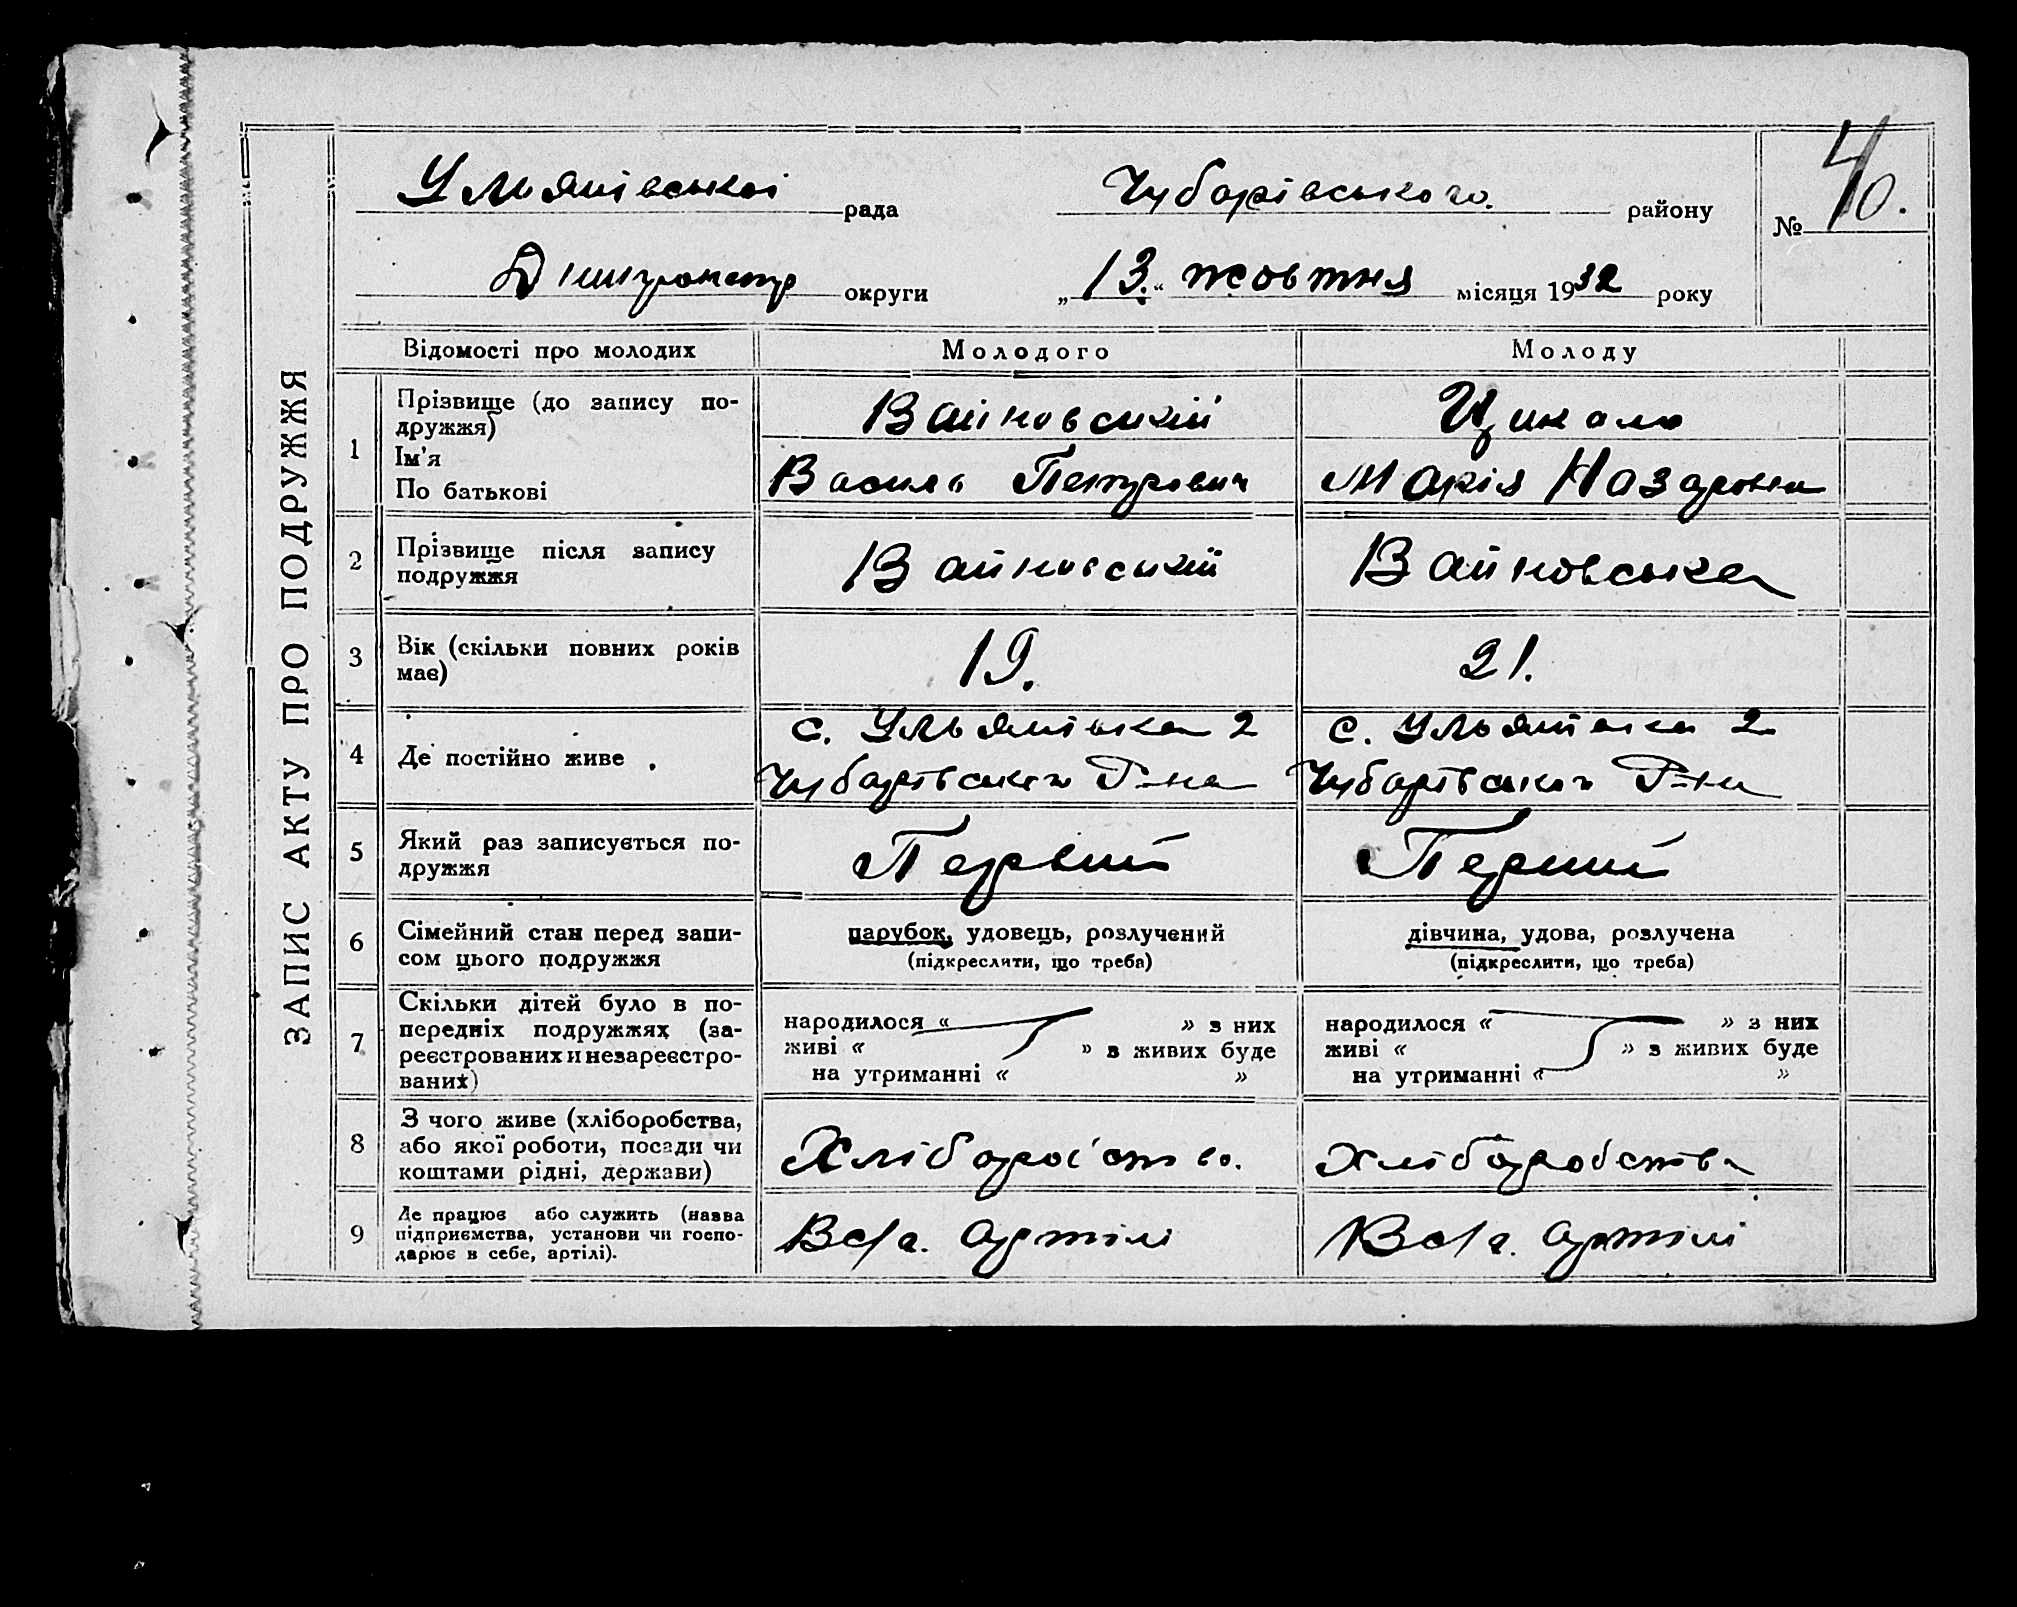 ЗАПИС АКТУ ПРО ПОДРУЖЖЯ
Ульянівської рада Чубарівського. району № 40.
округи „13.“ жовтня місяця 1932 року
Відомості про молодих Молодого Молоду
1 Прізвище (до запису по-
дружжя)
Ім'я
По батькові
Вайновський
Василь Петрович
Марія Назаровна
2 Прізвище після запису
подружжя
Вайновський
Вайновська
3 Вік (скільки повних років
має)
19.
21.
4 Де постійно живе
с. Ульянівка 2
Чубарівського Р-на
с. Ульянівка 2
Чубарівського Р-на
5 Який раз записується по-
дружжя
Первий
Перший
6 Сімейний стан перед запи-
сом цього подружжя
парубок, удовець, розлучений
(підкреслити, що треба)
дівчина, удова, розлучена
(підкреслити, що треба)
7 Скільки дітей було в по-
передніх подружжях (за-
реєстрованих и незареєстро-
ваних)
народилося « » з них
живі « » в живих буде
на утриманні « »
народилося « » з них
живі « » в живих буде
на утриманні « »
8 З чого живе (хліборобства,
або якої роботи, посади чи
коштами рідні, держави)
Хліборобство.
Хліборобства
9 Де працює або служить (назва
підприємства, установи чи госпо-
дарює в себе, артілі).
В с/г. артілі
В с/г. артілі